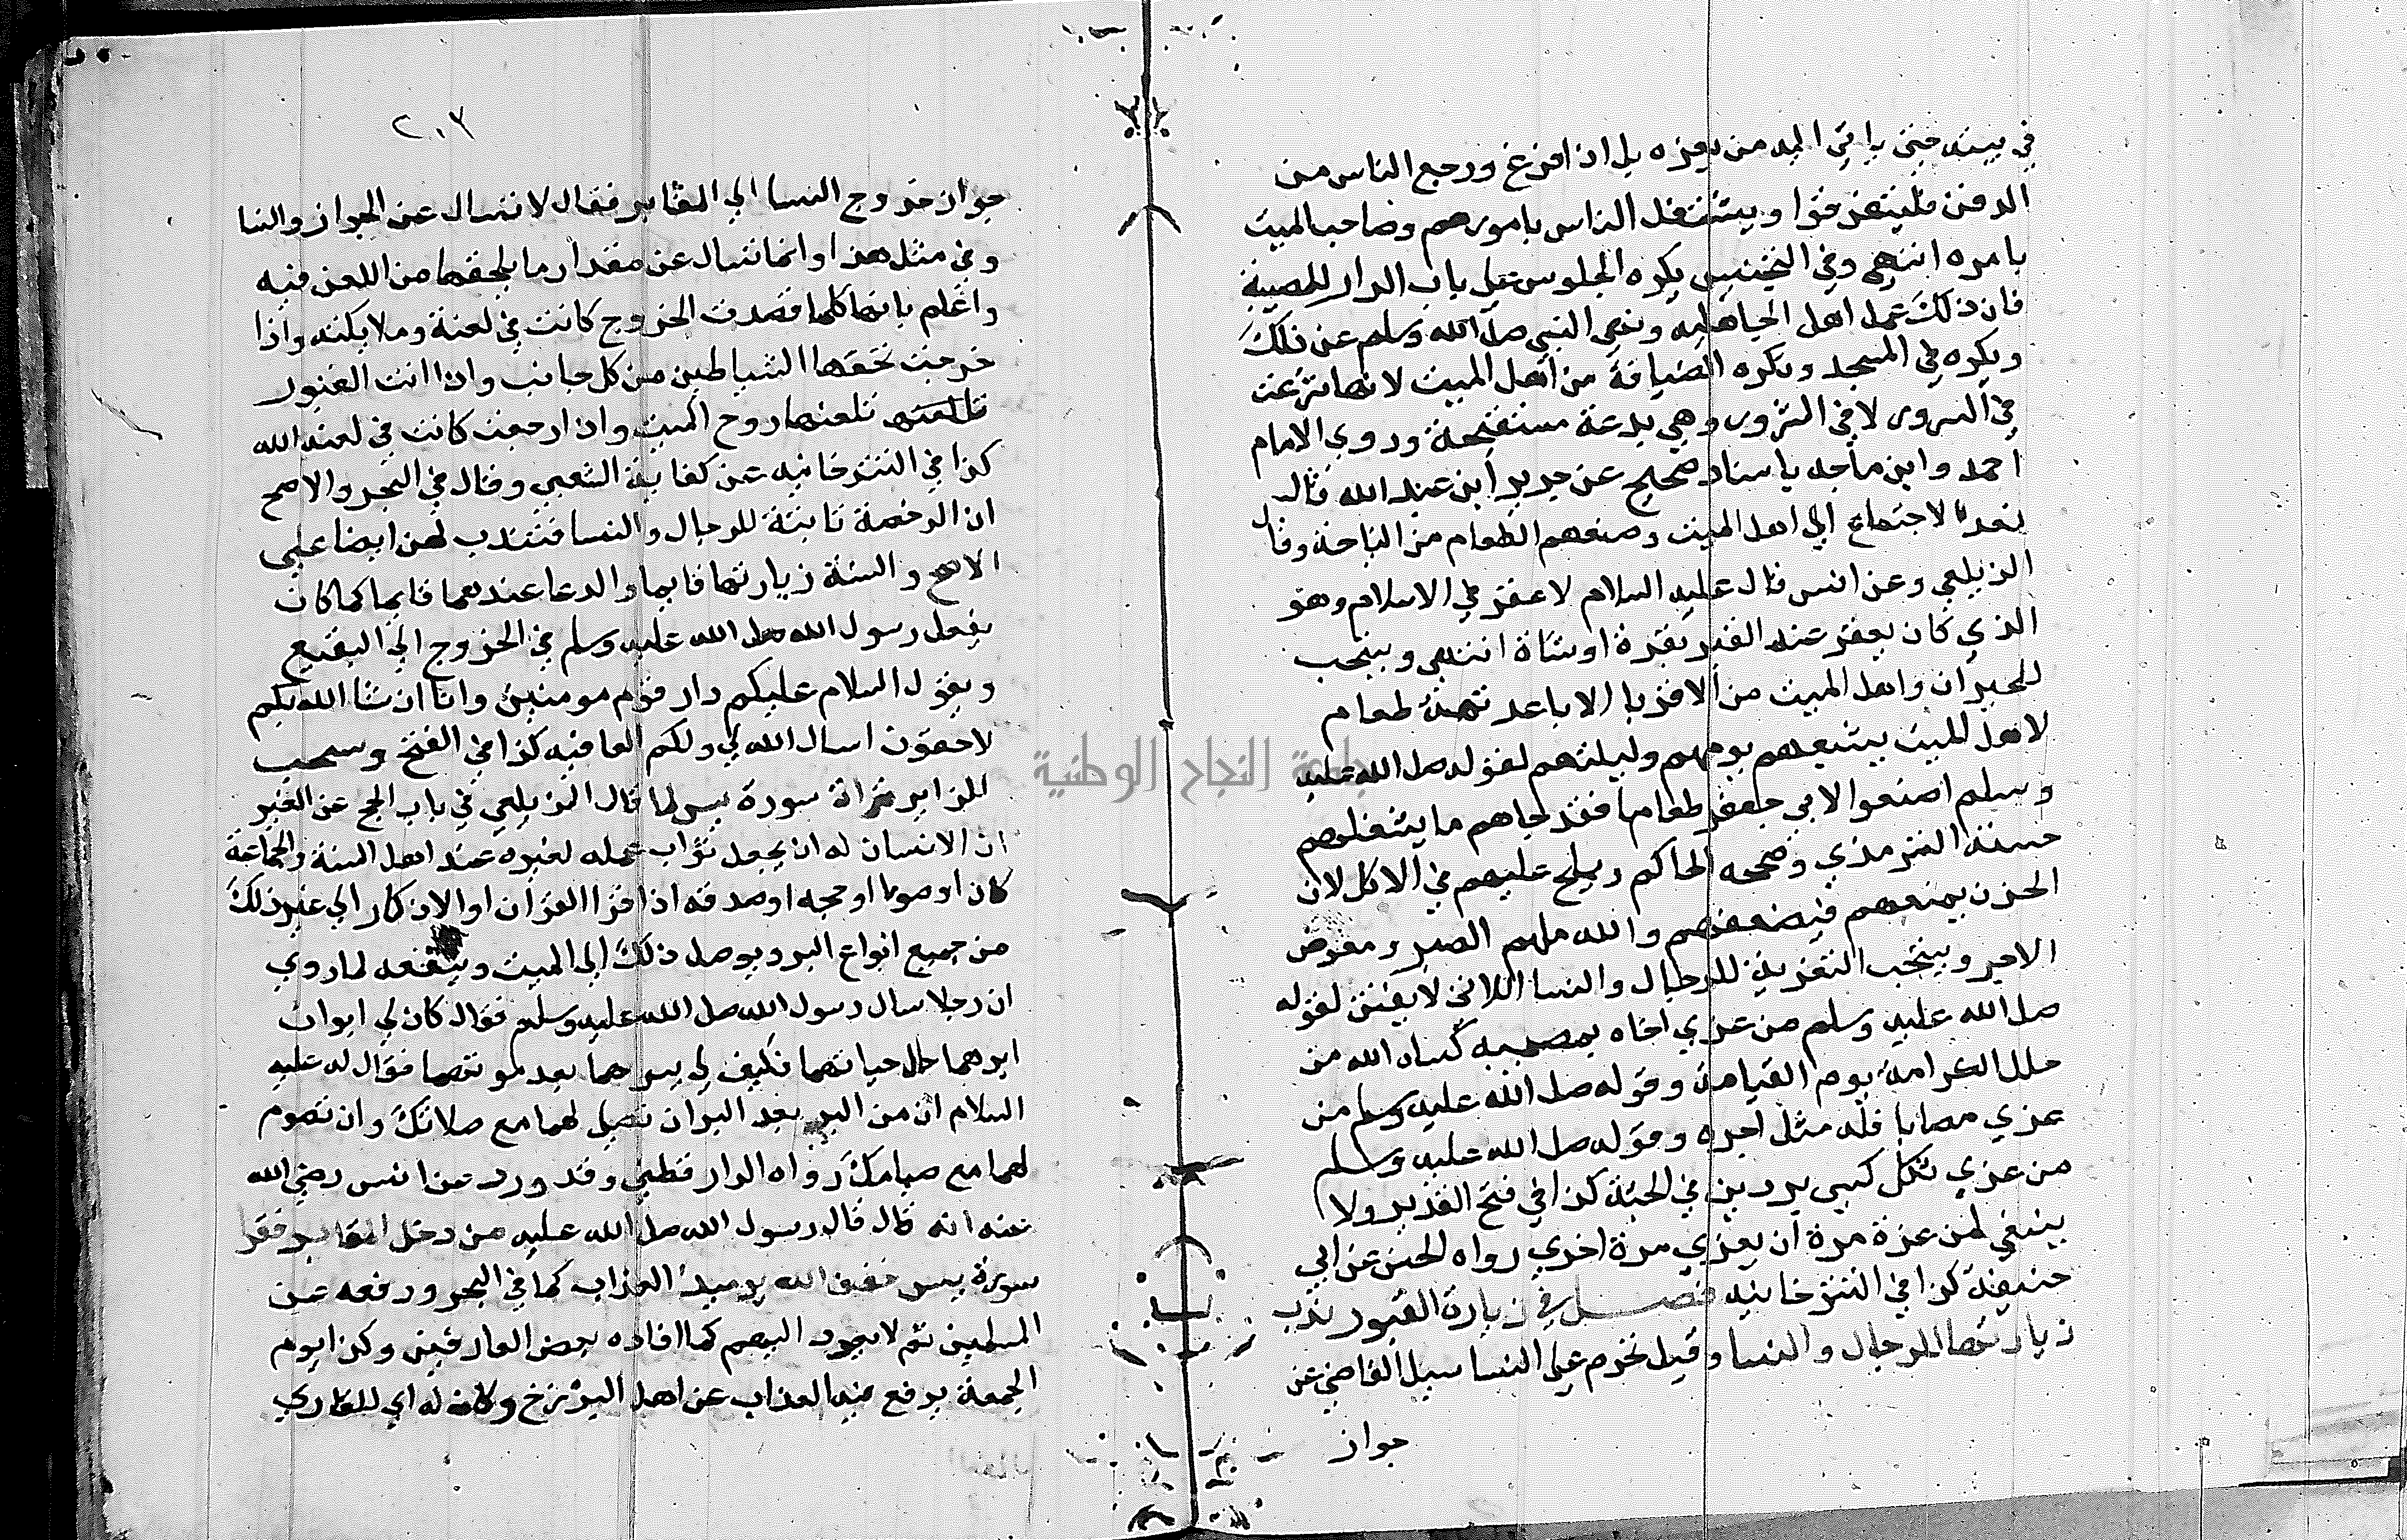 في بيته حتى ياتي اليه من يعزه بل اذا فرغ ورجع الناس من
الدفن فليتفرقوا ويشتغل الناس بامورهم وصاحب الميت
بامره انتهى وفي التجنيس يكره الجلوس على باب الدار للمصيبة
فان ذلك عمل اهل الجاهلية ونهى النبي صلى الله وسلم عن ذلك
ويكره في المسجد وتكره الضيافة من اهل الميت لانها شرعت
في السرور لا في الشرور وهي بدعة مستقبحة وروى الامام
احمد وابن ماجه باسناد صحيح عن جرير ابن عبد الله قال
نعد الاجتماع الى اهل الميت وصنعهم الطعام من النياحة وقال
الزيلعي وعن انس قال عليه السلام لا عقر في الاسلام وهو
الذي كان يعقر عند القبر بقرة او شاة انتهى ويستحب
للجيران واهل الميت من الاقربا الاباعد تهيئة طعام
لاهل الميت يشبعهم يومهم وليلتهم لقوله صلى الله عليه
وسلم اصنعوا لابي جعفر طعاما فقد جاهم ما يشغلهم
حسنه الترمذي وصححه الحاكم ويلح عليهم في الاكل لان
الحزن يمنعهم فيضعفهم والله ملهم الصبر ومعوض
الاجر ويستحب التعزية للرجال والنسا اللاتي لا يفتن لقوله
صلى الله عليه وسلم من عزي اخاه بمصيبه كساه الله من
حلل الكرامة يوم القيامة وقوله صلى الله عليه وسلم من
عزي مصابا فله مثل اجره وقوله صلى الله عليه وسلم
من عزي ثكلى كسي بردين في الجنة كذا في فتح القدير ولا
ينبغي لمن عزة مرة ان يعزي مرة اخري رواه الحسن عن ابي
حنيفة كذا في التترخانيه فصل في زيارة القبور ندب
زيارتها للرجال والنسا وقيل تحرم على النسا سيل القاضي عن
جواز
٢٠٢
جواز خروج النسا الي المقابر فقال لا تسال عن الجواز والنسا
وفي مثل هذا وانما تسال عن مقدار ما يلحقها من اللعن فيه
واعلم بانها كلما قصدت الخروج كانت في لعنة وملايكته واذا
خرجت تحفها الشياطين من كل جانب واذا اتت القبور
تلعنها روح الميت واذا رجعت كانت في لعنة الله
كذا في التترخانيه عن كفاية الشعبي وقال في البحر والاصح
ان الرخصة ثابتة للرجال والنسا فتندب لهن ايضا على
الاصح والسنة زيارتها قايما والدعا عندهما قايما كما كان
يفعل رسول الله صلى الله عليه وسلم في الخروج الى البقيع
ويقول السلام عليكم دار قوم مومنين وانا ان شا الله بكم
لاحقون اسال الله لي ولكم العافيه كذا في الفتح وسحب
للزاير قراة سورة يس لما قال الزيلعي في باب الحج عن الغير
ان الانسان له ان يجعل ثواب عمله لغيره عند اهل السنة والجماعة
كان او صوما او حجه او صدقه اذا قرا القران او الاذكار الى غير ذلك
من جميع انواع البر ويوصل ذلك الى الميت وينفعه لما روي
ان رجلا سال رسول الله صلى الله عليه وسلم فقال كان لي ابوان
ابرهما حال حياتهما فكيف لي ببرهما بعد موتهما فقال له عليه
السلام ان من البر بعد البر ان تصلي لهما مع صلاتك وان تصوم
لهما مع صيامك رواه الدار قطني وقد ورد عن انس رضي الله
عنه انه قال قال رسول الله صلى الله عليه من دخل المقابر فقرا
سورة يس خفف الله يوميذ العذاب كما في البحر ورفعه عن
المسلمين ثم لا يعود اليهم كما افاده بعض العارفين وكذا يوم
الجمعة يرفع فيه العذاب عن اهل البرزخ وكان له اي للقاري
جامعة النجاح الوطنية